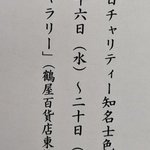 日チャリティー知名士色
十六日（水）～二十日（
ャラリー」（鶴屋百貨店東